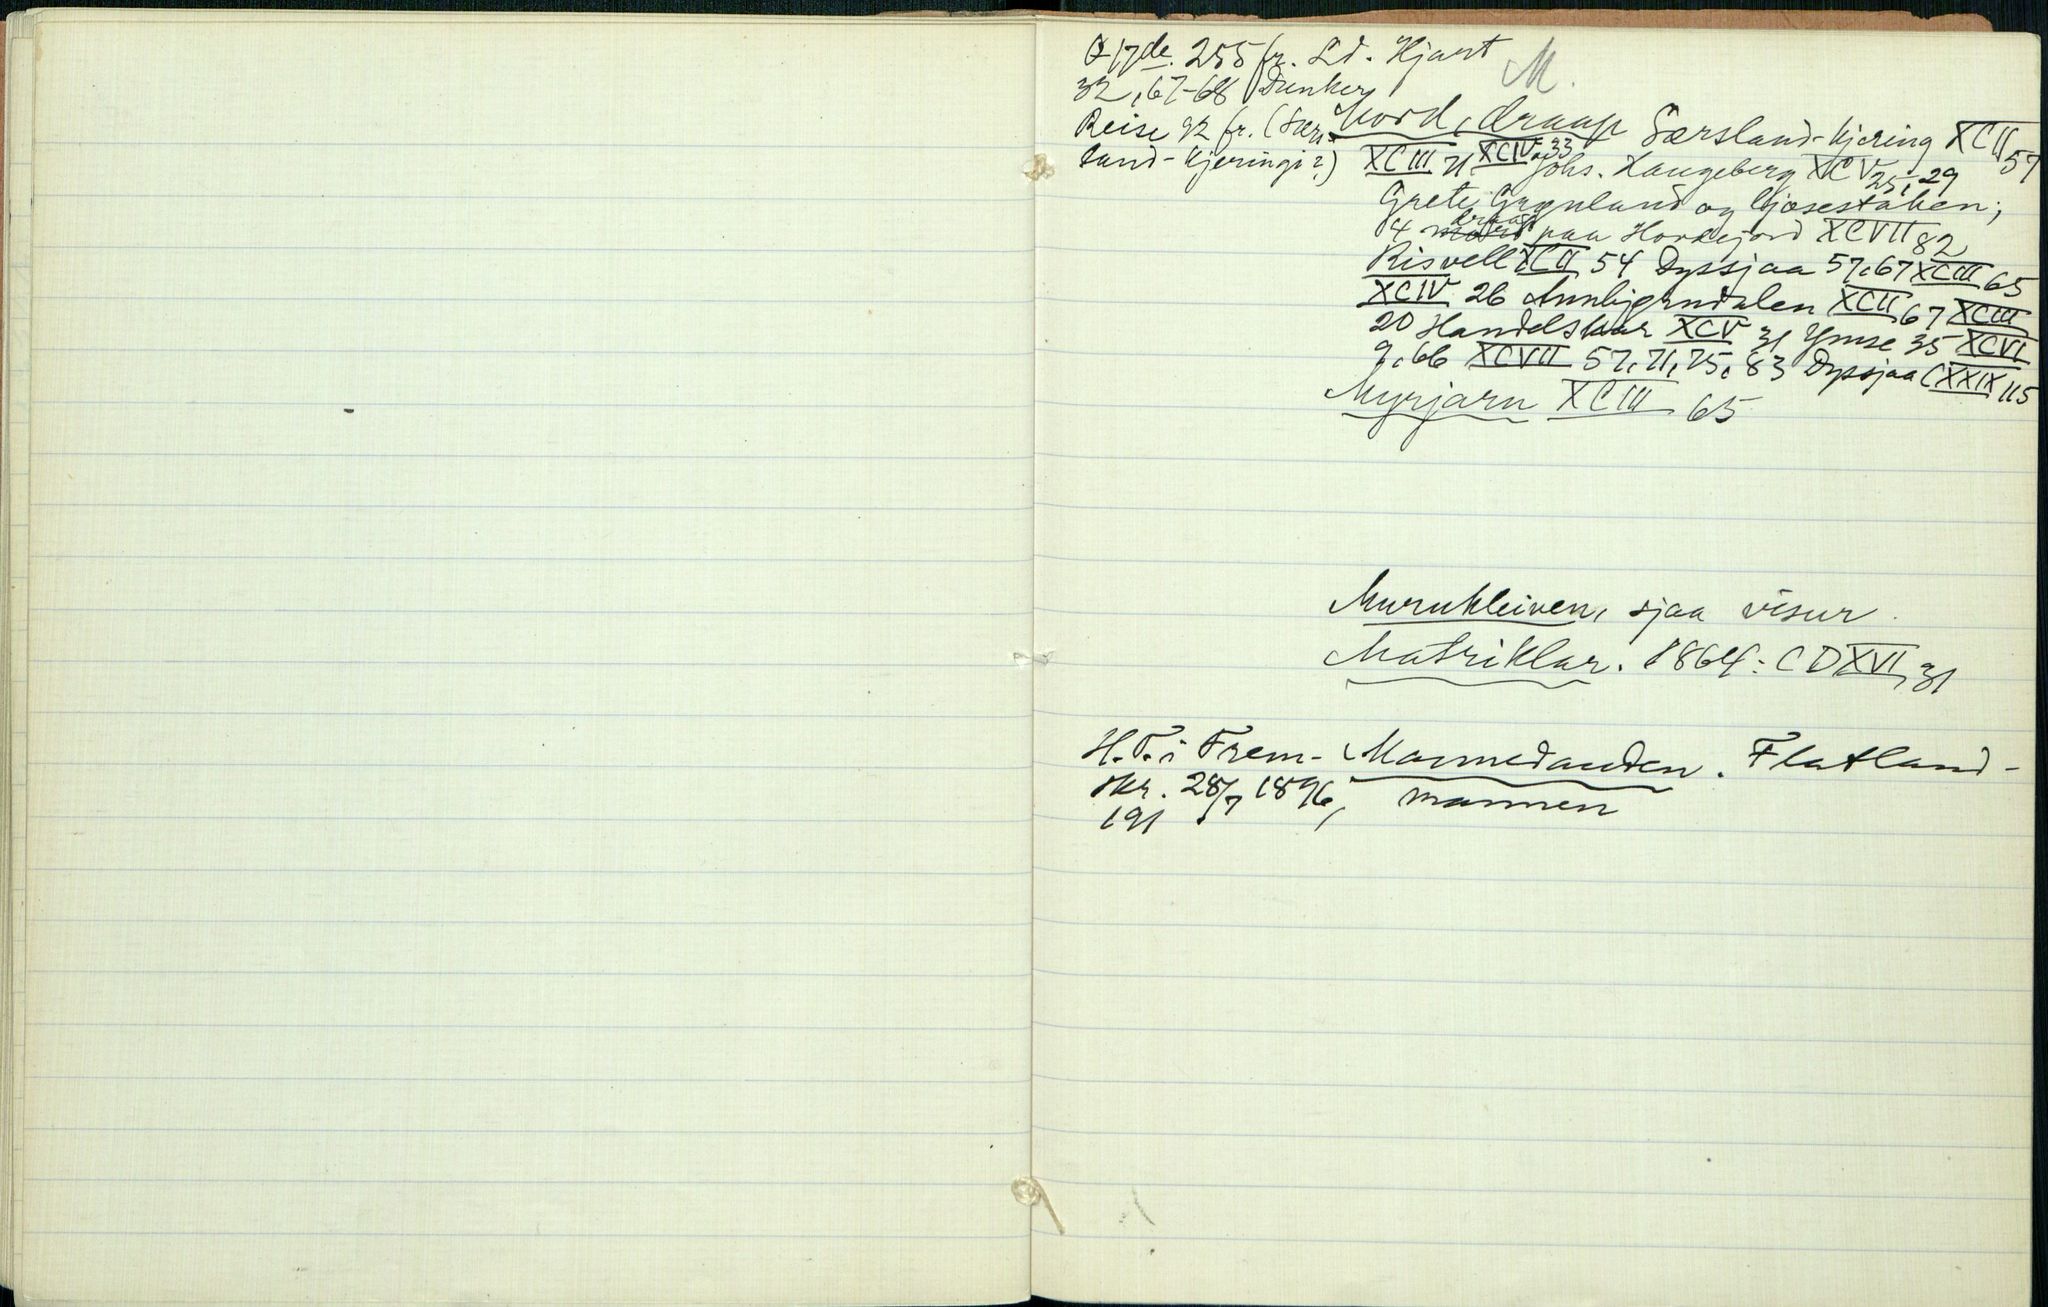 M.
17de. 255 fr. Ld. Hjart
32, 67-68 Dunker
Reise 92 fr. (Særs-
land-kjeringi?)
Mord, draap Særsland-kjering XCII 57
XCIII 71 XCIV 33 Johs. Haugeberg XCV 25, 29
Grete Grynland og Gjosestaken;
4 draap paa Hovdejord XCVII 82
Risvell XCII 54 Dyssjaa 57, 67 XCIII 65
XCIV 26 XCII 67 XCIII
20 Handelskar XCV 31 Ymse 35 XCVI
9, 66 XCVII 57, 71, 75, 83 Dyssjaa CXXIX 115
Myrjarn XCIII 65
Murukleiven, sjaa visur
Matriklar. 1864: CDXVI, 31
H.T. i Frem-
skr. 28/7 1896,
191
Mannedauden. Flatland-
mannen